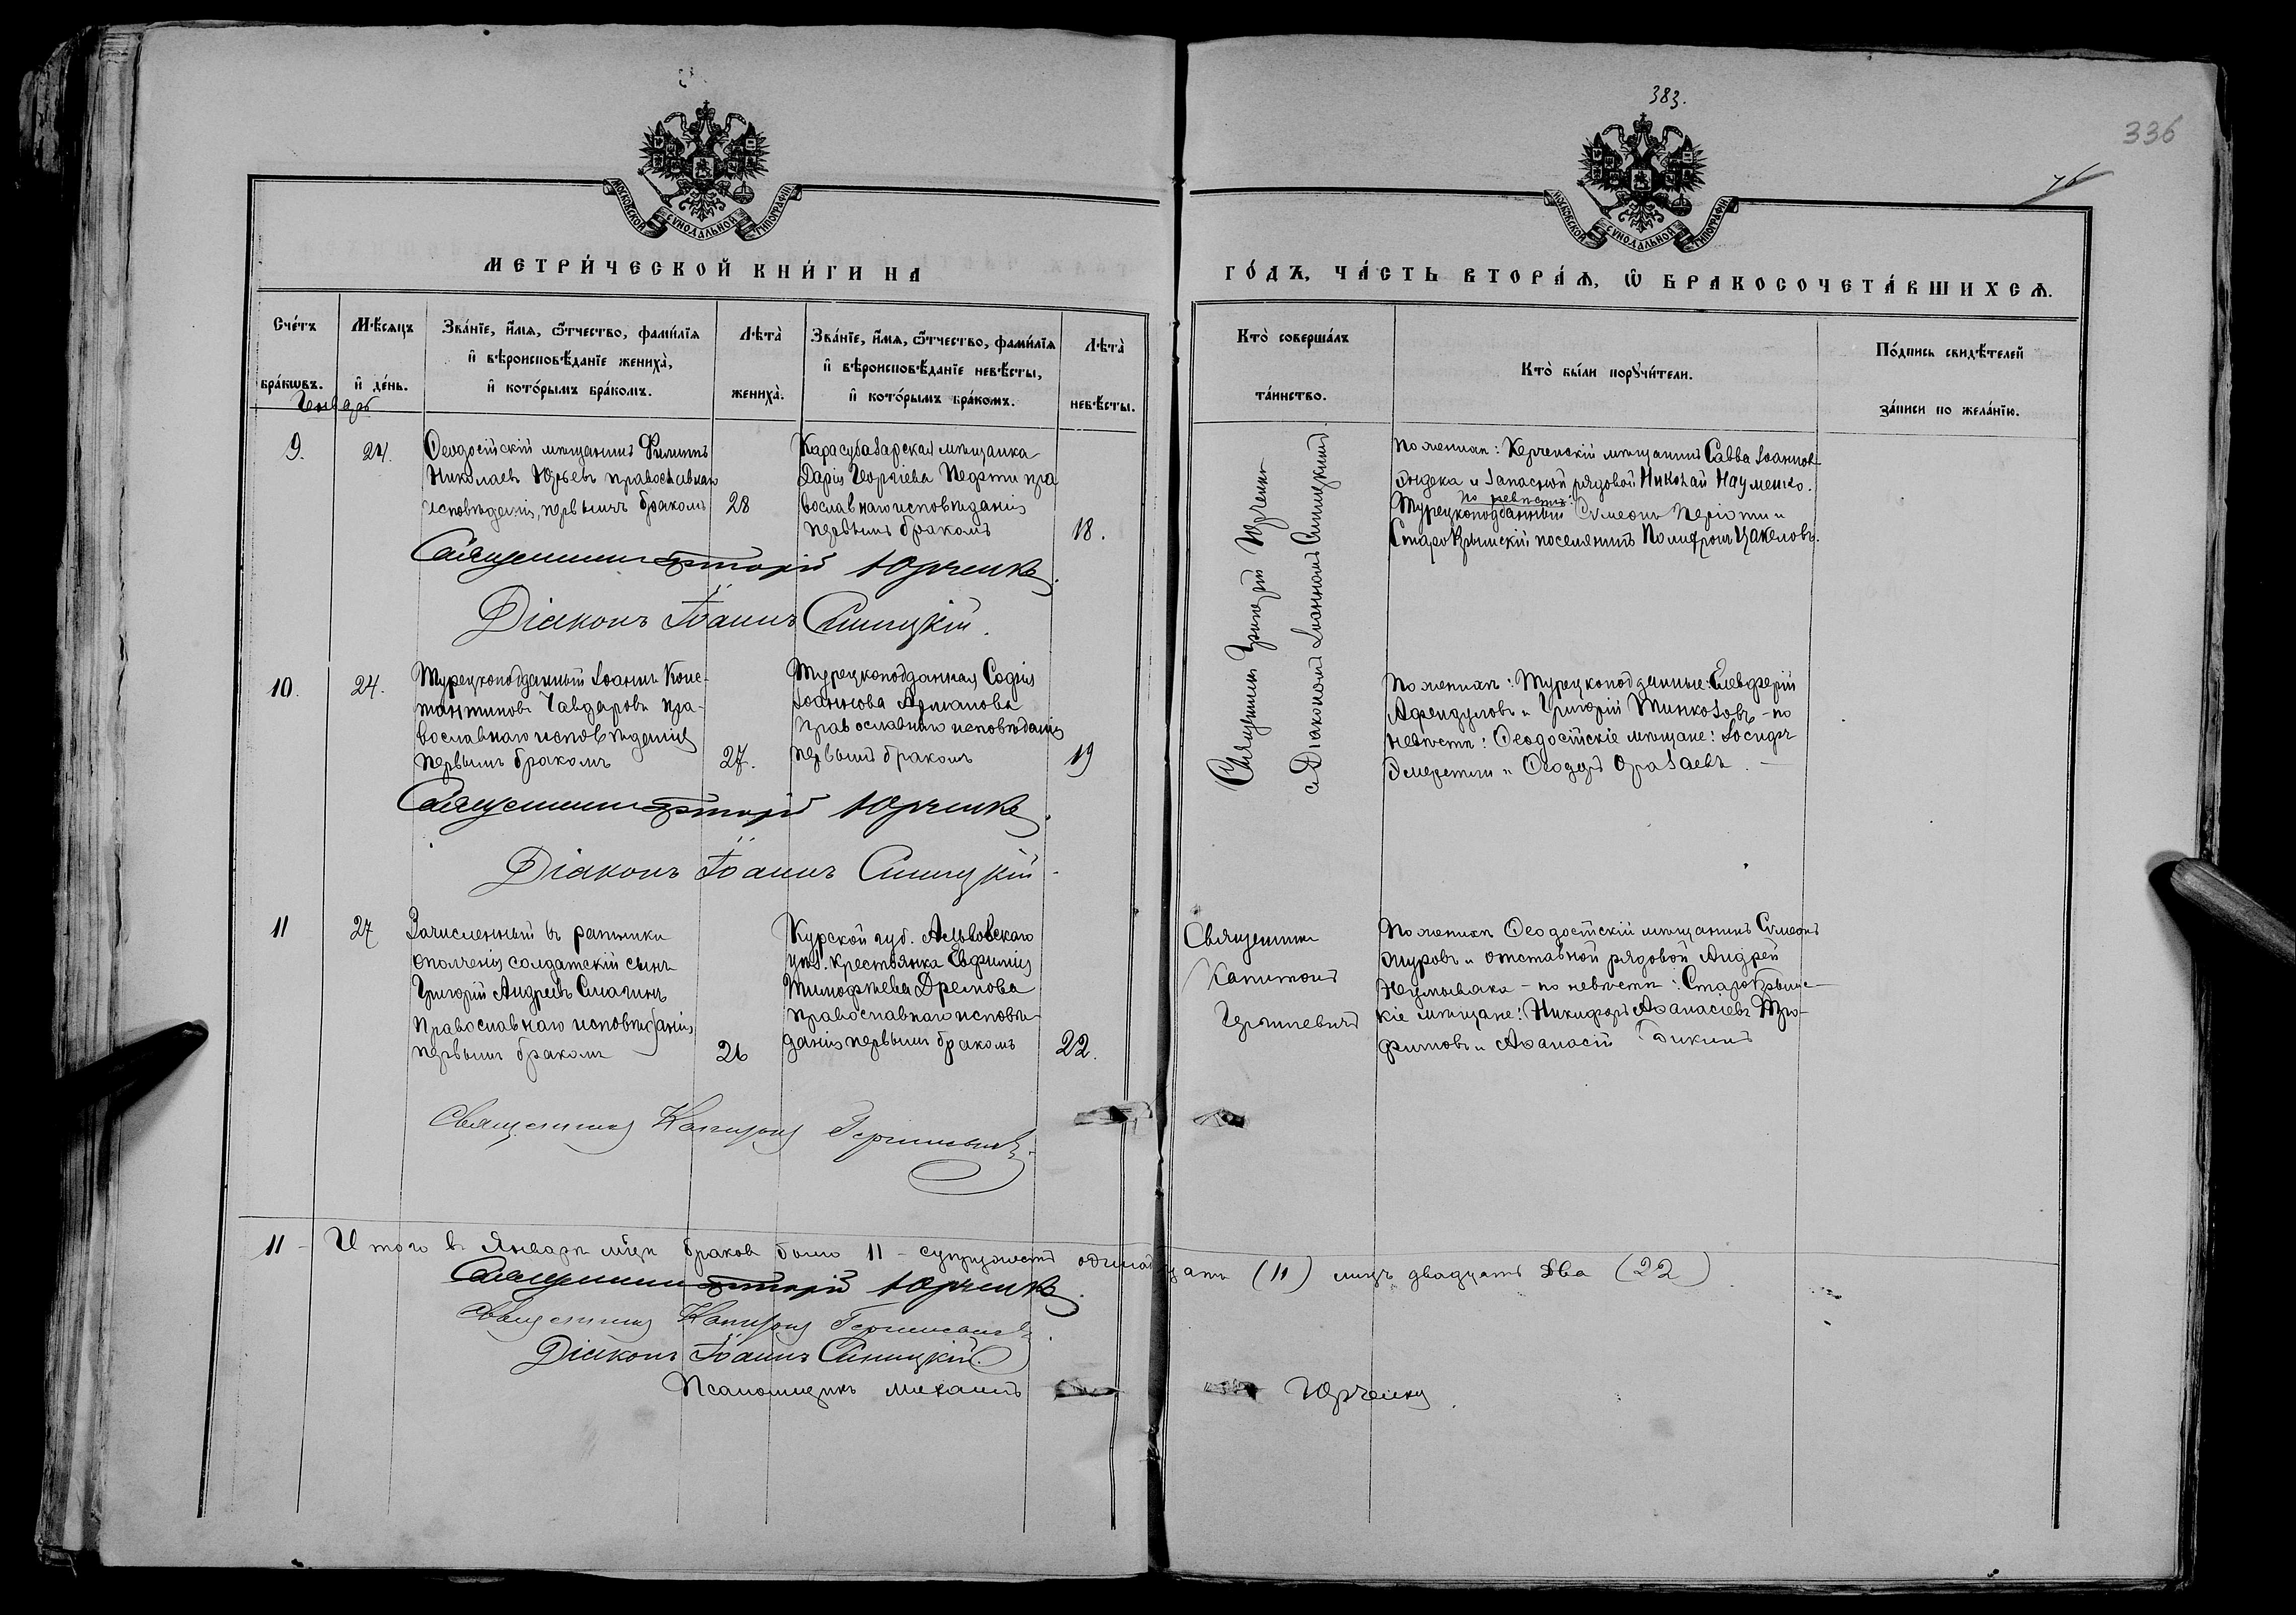 383.
336
76
МОСКОВСКОЙ СУНОДАЛЬНОЙ ТИПОГРАФІИ
МОСКОВСКОЙ СУНОДАЛЬНОЙ ТИПОГРАФІИ
МЕТРИ́ЧЕСКОЙ КНИ́ГИ НА
ГО́ДЪ, ЧА́СТЬ ВТОРА́Я, Ѿ БРАКОСОЧЕТА́ВШИХСЯ.
Сче́тъ
бра́кѡвъ.
Мѣ́сяцъ
и҆ де́нь.
Зва́нїе, и҆́мя, ѻ҆́тчество, фами́лїя
и҆ вѣроисповѣ́данїе жениха̀,
и҆ кото́рымъ бра́комъ.
Лѣта̀
жениха̀.
Зва́нїе, и҆́мя, ѻ҆́тчество, фами́лїя
и҆ вѣроисповѣ́данїе невѣ́сты,
и҆ кото́рымъ бра́комъ.
Лѣта̀
невѣ́сты.
Кто̀ соверша́лъ
та́инство.
Кто̀ бы́ли пору́чители.
По́дпись свидѣ́телей
за́писи по жела́нїю.
Январь
9.
24.
Ѳеодосійскій мѣщанинъ Филиппъ
Николаевъ Юрьевъ православнаго
исповѣданія, первымъ бракомъ
28
Карасубазарская мѣщанка
Дарія Георгіева Пефти пра
вославнаго исповѣданія
первымъ бракомъ
18.
Священникъ Григорій Юрченко
съ Діакономъ Іоанномъ Синицкимъ
По женихѣ: Керченскій мѣщанинъ Савва Іоаннов
и запасной рядовой Николай Науменко.
по невѣстѣ:
Турецкоподданный Сумеонъ и
Старокрымскій поселянинъ Цакеловъ.
Священникъ Григорій Юрченко.
Діаконъ Іоаннъ Синицкій.
10.
24.
Турецкоподданный Іоаннъ Конс-
тантиновъ Чавдаровъ пра-
вославнаго исповѣданія
первымъ бракомъ
27.
Турецкоподданная Софія
Іоаннова Арманова
православнаго исповѣданія
первымъ бракомъ
19
По женихѣ: Турецкоподданные: Елевферій
Афендуловъ и Григорій Тинкозовъ - по
невѣстѣ: Ѳеодосійскіе мѣщане: Іосифъ
и Ѳеодоръ
Священникъ Григорій Юрченко.
Діаконъ Іоаннъ Синицкій.
11
27
Зачисленный въ ратники
ополченія солдатскій сынъ
Григорій Андреевъ Смагинъ
православнаго исповѣданія
первымъ бракомъ
26
Курской губ. Льговскаго
уѣз. крестьянка Евфимія
Тимофѣева Дремова
православнаго исповѣ-
данія первымъ бракомъ
22.
Священникъ
Капитонъ
По женихѣ Ѳеодосійскій мѣщанинъ Сумеонъ
и отставной рядовой Андрей
- по невѣстѣ: Старокрымс-
кіе мѣщане: Никифоръ Аѳанасіевъ Тро-
фимовъ и Аѳанасій
Священникъ Капитонъ
11 - Итого въ Январѣ мѣцѣ браковъ было 11 - супружествъ одинадцать (11) лицъ двадцать два (22)
Священникъ Григорій Юрченко.
Священникъ Капитонъ
Діаконъ Іоаннъ Синицкій.
Псаломщикъ Михаилъ Юрченко.